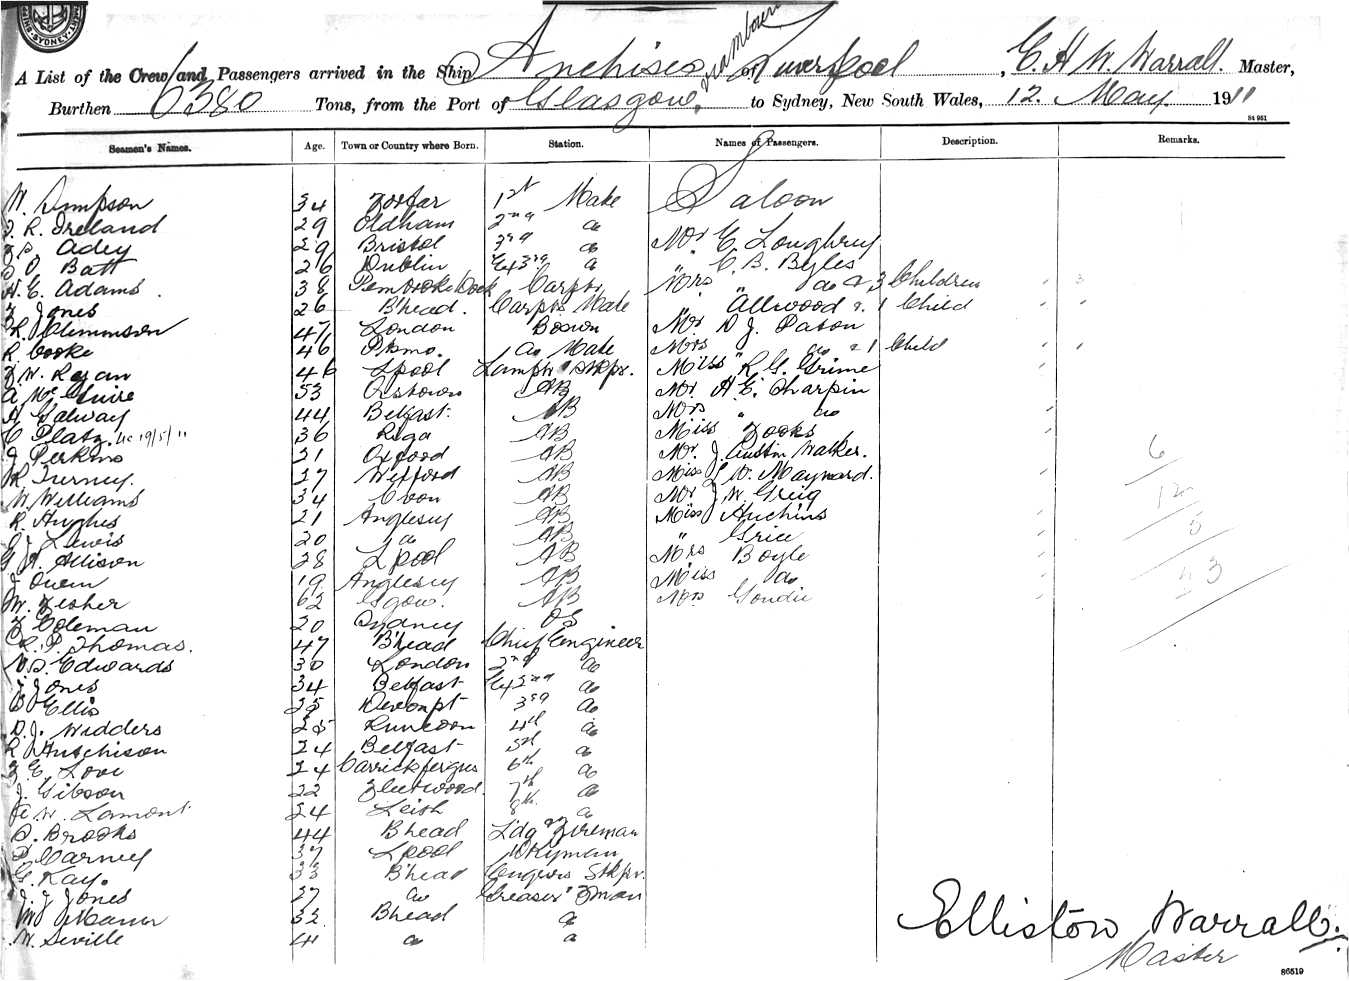 SYDNEY
A List of the Crew and Passengers arrived in the Ship Anchises of Liverpool, E. H. W. Warrall. Master,
Burthen 6380 Tons, from the Port of Glasgow, to Sydney, New South Wales, 12. May 1911
84 951
Seamen's Names. Age. Town or Country where Born. Station. Names of Passengers. Description. Remarks.
W. Simpson 34 1st Mate Saloon
R. Ireland 29 Oldham 2nd do
Adey 29 Bristol 3rd do Mr E. Loughrey
Batt 26 Dublin Ex 3rd do " C. B. Byles
H. E. Adams 38 Pembroke Dock Carptr Mrs " do & 3 Children
Jones 26 B'head. Carptrs Mate " Allwood & 1 Child
R. Clemmson 47 London Bosun Mr D J. Paton
R. Cooke 46 do Mate Mrs " do & 1 Child
W. Regan 46 Lpool Lamptr & Stkpr. Miss R. G. Grime
A McGuire 53 AB Mr. H. E. Sharpin
H Galway 44 Belfast AB Mrs " do
C Platz. 19/5/11 36 Riga AB Miss Zooks
J Perkins 21 Oxford AB Mr. J. Austin Walker. 6
R Turney. 27 Wexford AB Miss D. Maynard.
W Williams 34 AB Mr J. W. Greig 12
R. Hughes 21 Anglesey AB Miss Huchins
J Lewis 20 do AB " Grice 5
G H. Allison 28 Lpool AB Mrs Boyle
J Owen 19 Anglesey AB Miss do 43
W. Fisher 62 Ggow. AB Mrs Goudie
Coleman 20 Sydney OS
R. P. Thomas. 47 B'head Chief Engineer
Edwards 30 London 2nd do
J. Jones 34 Belfast Ex 2nd do
Ellis 25 Devonpt 3rd do
D. J. Widders 25 Runcorn 4th do
R Hutchison 24 Belfast 5th do
F. E. Love 24 Carrickfergus 6th do
J. Gibson 22 Fleetwood. 7th do
W. Lamont 24 Leith 8th. do
Brooks 44 B'head Ldg Fireman
P Carney 37 Lpool Dkyman
G. Kay. 33 B'head Engrs Stkpr.
J. J Jones 27 do Greaser & Fman
32 B'head do
W. Seville 41 do do
Elliston Warrall.
Master
86519